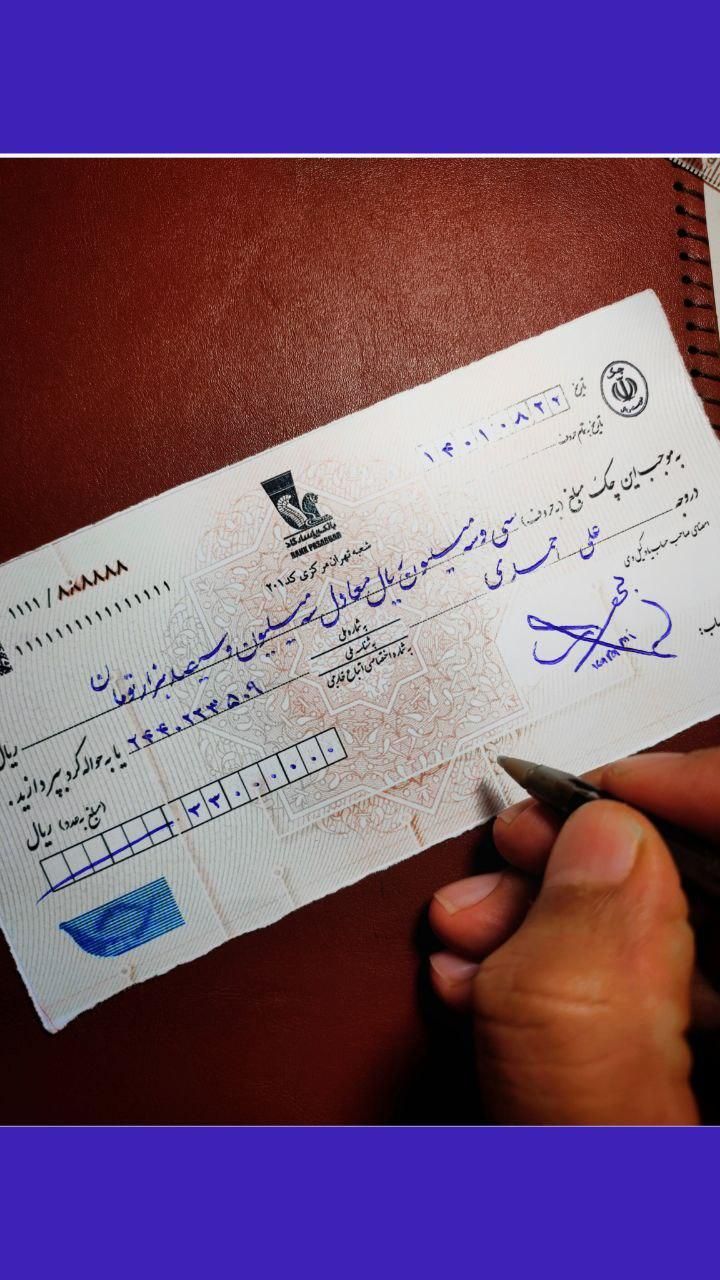 چک
تاریخ ۱۴۰۱۰۸۲۲
تاریخ به تمام حروف:
بانک پاسارگاد
BANK PASARGAD
شعبه تهران مرکزی کد ۲۰۱
۱۱۱۱ / ۸۸۸۸۸۸
۱۱۱۱۱۱۱۱۱۱۱۱۱۱۱۱
به موجب این چک مبلغ (به حروف) سی و سه میلیون ریال معادل سه میلیون و سیصد هزار تومان ریال
در وجه علی احمدی
به شماره ملی
به شناسه ملی
به شماره اختصاصی اتباع خارجی
۲۴۴۰۲۲۳۵۰۹ یا به حواله کرد بپردازند.
امضای صاحب حساب یا وکیل وی
(مبلغ به عدد) ریال ۳۳۰۰۰۰۰۰